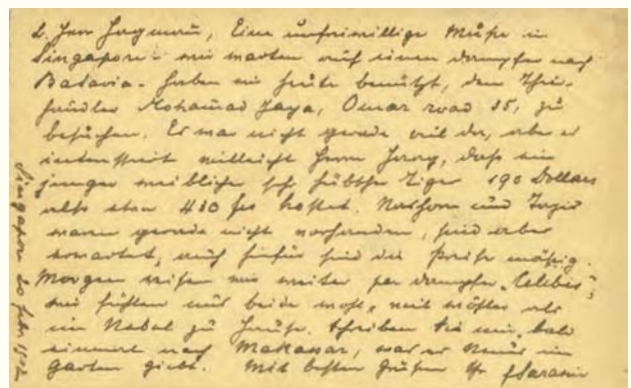 L. Herr Hagmann, Eine unfreiwillige Muße in
Singapore: wir warten auf einen Dampfer nach
Batavia. haben wir heute benützt, den Thier-
händler Mohamad Jaya, Omar road 15, zu
besuchen. Es war nicht gerade viel da, aber es
interessirt vielleicht Herrn, daß ein
junger weiblicher sehr hübscher Tiger 190 Dollars
also etwa 480 frs kostet. Nashorn und Tapir
waren gerade nicht vorhanden, sind aber
erwartet, auch hiefür sind die Preise mäßig.
Morgen reisen wir weiter per Dampfer "Celebes";
wir fühlen uns beide wohl, weit wöhler als
im Nebel zu Hause. Schreiben Sie mir bald
einmal nach Makassar, was es Neues im
Garten giebt. Mit besten Grüßen Ihr FSarasin
Singapore 20 Febr. 1902